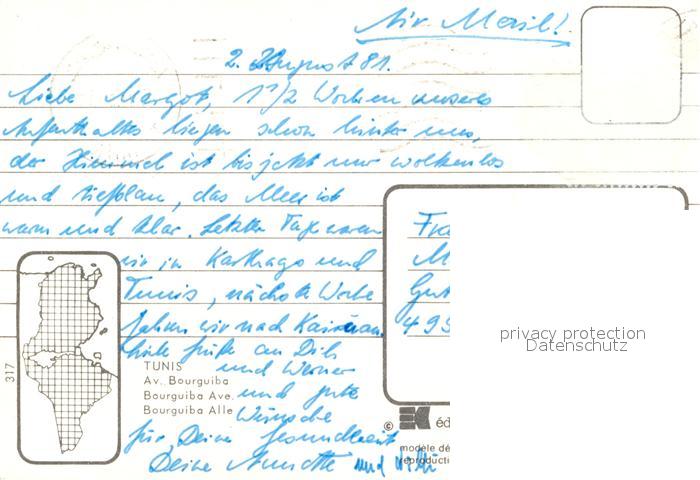 Air Mail!
2. August 81.
Liebe Margot, 1 1/2 Wochen unseres
Aufenthaltes liegen schon hinter uns,
der Himmel ist bis jetzt nur wolkenlos
und tiefblau, das Meer ist
warm und klar. Letzten Tage waren
wir in Karthago und
Tunis, nächste Woche
fahren wir nach Kairouan
Viele Grüße an Dich
und Werner
und gute
Wünsche
für Deine Gesundheit
Deine Annette und Willi
317
TUNIS
Av. Bourguiba
Bourguiba Ave.
Bourguiba Alle
Fra
M
Gut
495
privacy protection
Datenschutz
© EK éd
modèle dé
reproducti